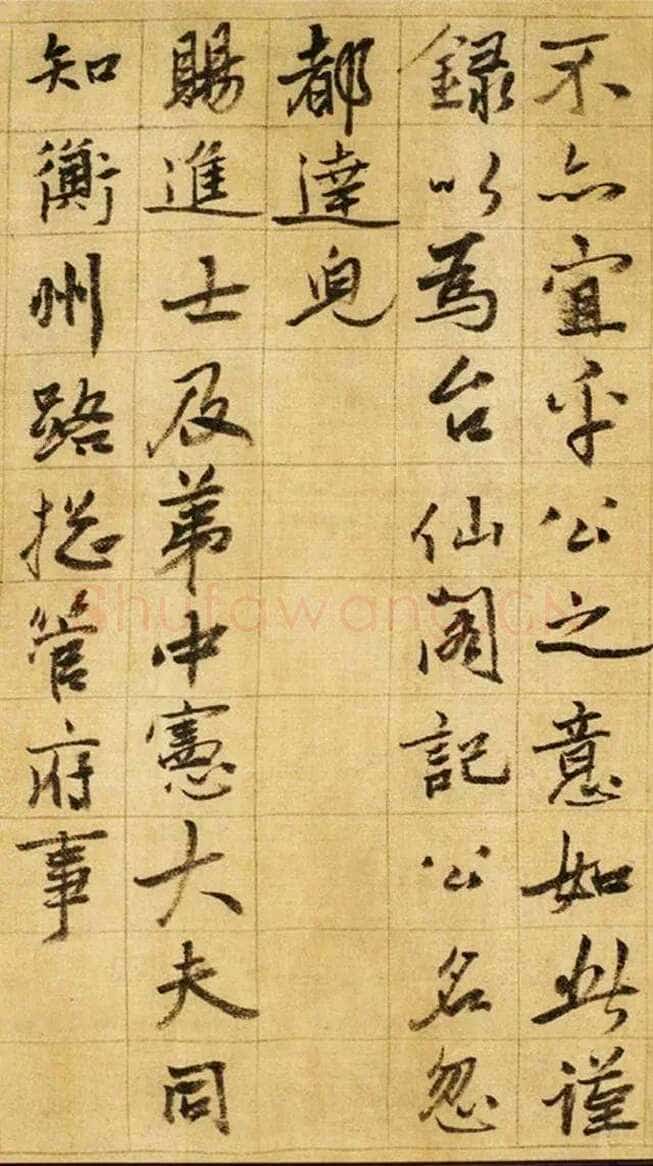 不亦宜乎公之意如此謹
錄以為台仙閣記公名忽
都達皃
賜進士及第中憲大夫同
知衡州路捴管府事